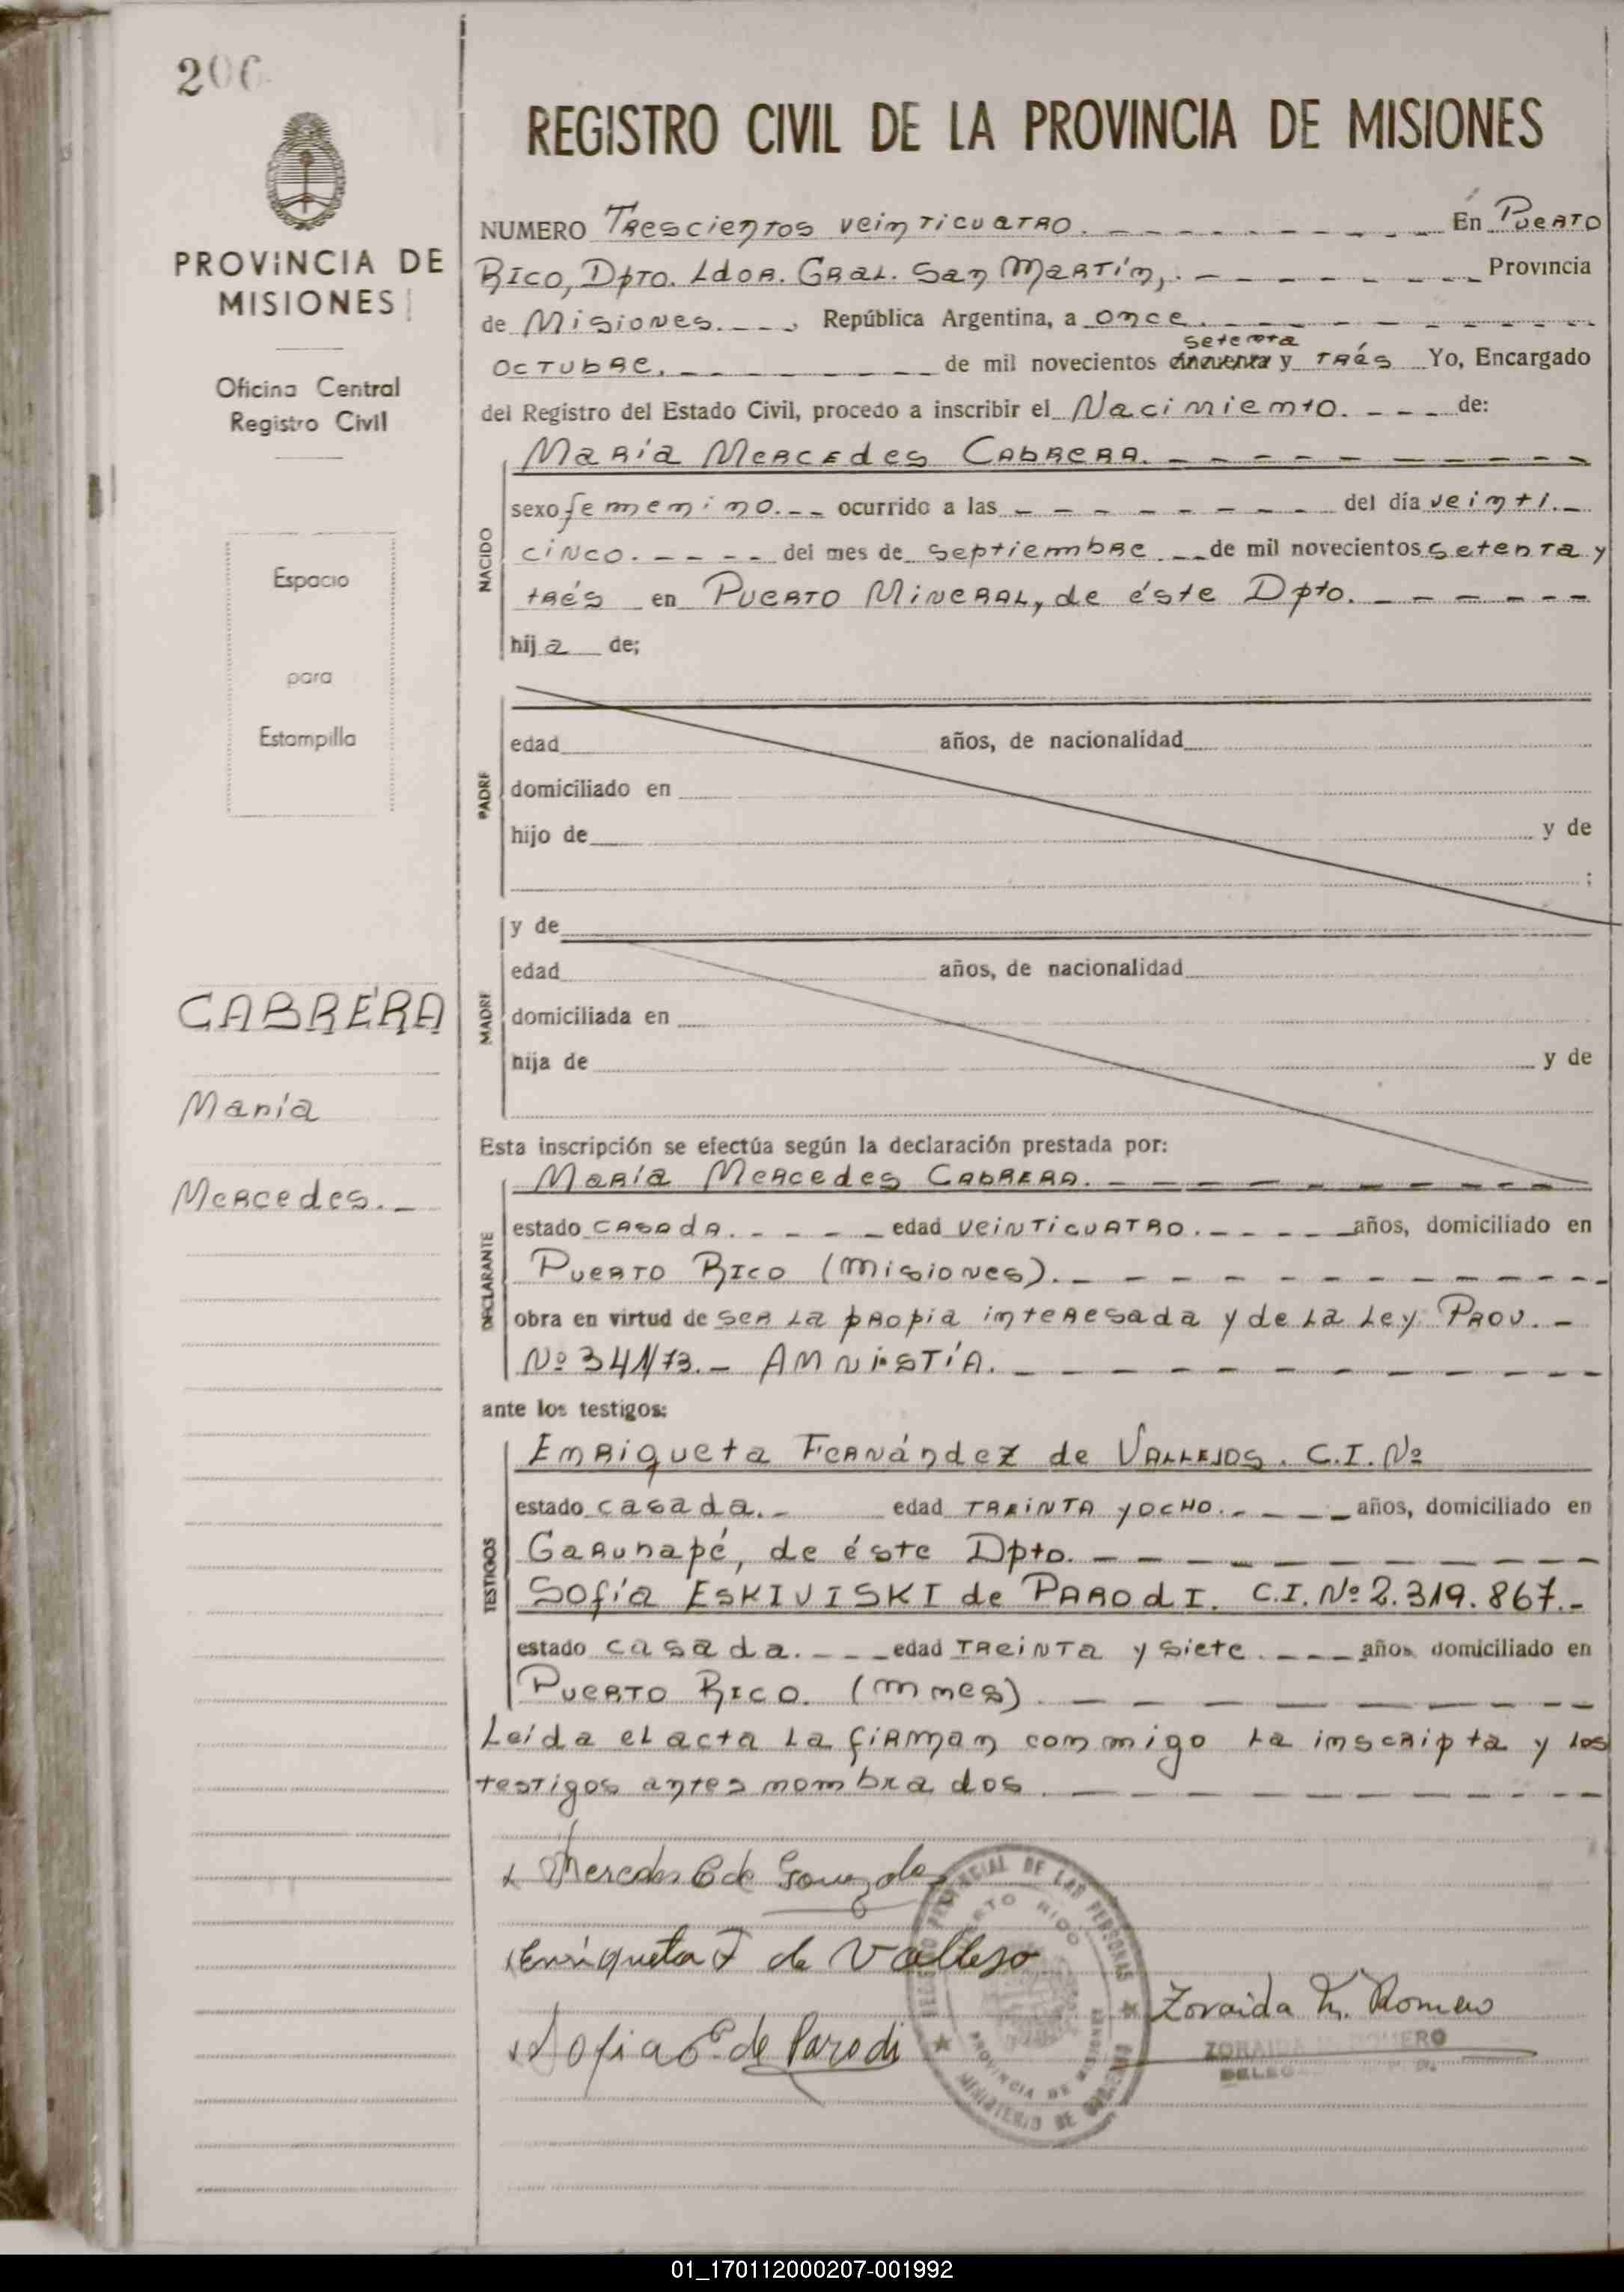 206
PROVINCIA DE
MISIONES
Oficina Central
Registro Civil
Espacio
para
Estampilla
CABRERA
María
Mercedes._
REGISTRO CIVIL DE LA PROVINCIA DE MISIONES
NUMERO Trescientos veinticuatro. En Puerto
Rico, Dpto. Ldor. Gral. San Martín, Provincia
de Misiones. , República Argentina, a once.
setenta
octubre, de mil novecientos cincuenta y trés Yo, Encargado
del Registro del Estado Civil, procedo a inscribir el Nacimiento. de:
María Mercedes Cabrera.
NACIDO
sexo femenino. ocurrido a las del día veinti.
cinco. del mes de septiembre de mil novecientos setenta y
trés en Puerto Mineral, de éste Dpto.
hija de;
PADRE
edad años, de nacionalidad
domiciliado en
hijo de y de
;
MADRE
y de
edad años, de nacionalidad
domiciliada en
hija de y de
Esta inscripción se efectúa según la declaración prestada por:
María Mercedes Cabrera.
DECLARANTE
estado casada. edad veinticuatro. años, domiciliado en
Puerto Rico (Misiones).
obra en virtud de ser la propia interesada y de la Ley Prov. -
Nº 341/73.- Amnistía.
ante los testigos:
TESTIGOS
Enriqueta Fernández de Vallejos. C.I. Nº
estado casada. edad treinta y ocho. años, domiciliado en
Garuhapé, de éste Dpto.
Sofía Eskiviski de Parodi. C.I. Nº 2.319.867.-
estado casada. edad treinta y siete. años, domiciliado en
Puerto Rico. (Mnes).
Leída el acta la firman conmigo la inscripta y los
testigos antes nombrados
Mercedes C de Gonzales
Enriqueta F de Vallejo
Sofia E. de Parodi
REGISTRO PROVINCIAL DE LAS PERSONAS
PUERTO RICO
PROVINCIA DE MISIONES
MINISTERIO DE GOBIERNO
Zoraida M. Romero
ZORAIDA M. ROMERO
01_170112000207-001992